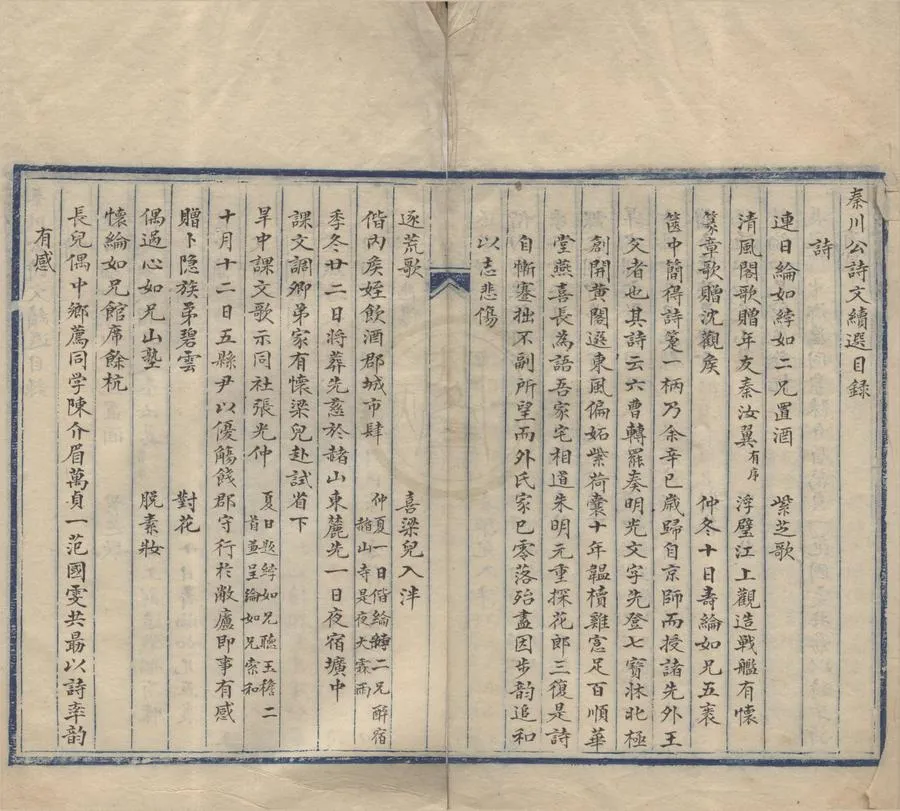 秦川公詩文續選目録
詩
連日綸如綍如二兄置酒 紫芝歌
清風閣歌贈年友秦汝翼有序 浮璧江上觀造戰艦有懷
篆章歌贈沈觀矦 仲冬十日壽綸如兄五袠
篋中簡得詩箑一柄乃余辛巳歲歸自京師而授諸先外王
父者也其詩云六曹轉罷奏明光文字先登七寶牀北極
創開黄閣選東風偏妬紫荷囊十年韞櫝雞窓足百順華
堂燕喜長為語吾家宅相道朱明元重探花郎三復是詩
自慚蹇拙不副所望而外氏家已零落殆盡因步韵追和
以志悲傷
逐荒歌 喜梁兒入泮
偕內矦姪飲酒郡城市肆 仲夏一日偕綸綍二兄醉宿
赭山寺是夜大霖雨
季冬廿二日將葬先慈於赭山東麓先一日夜宿壙中
課文調卿弟家有懷梁兒赴試省下
旱中課文歌示同社張光仲 夏日題綍如兄聽玉簷二
首並呈綸如兄索和
十月十二日五縣尹以優觴餞郡守行於敝廬即事有感
贈卜隐族弟碧雲 對花
偶過心如兄山塾 脫素妝
懷綸如兄館席餘杭
長兒偶中鄉薦同学陳介眉萬貞一范國雯共最以詩率韵
有感